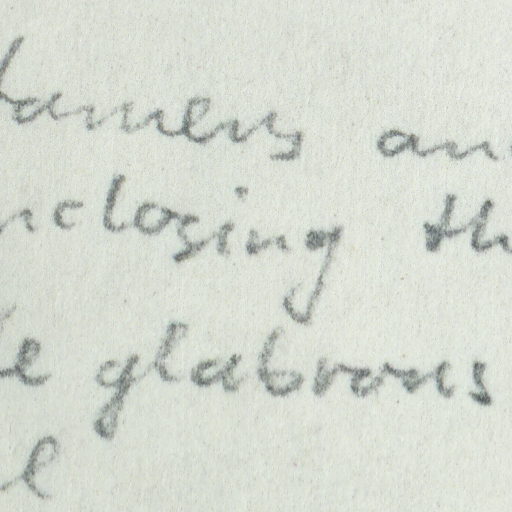 stamens and
enclosing th
le glabrous
le